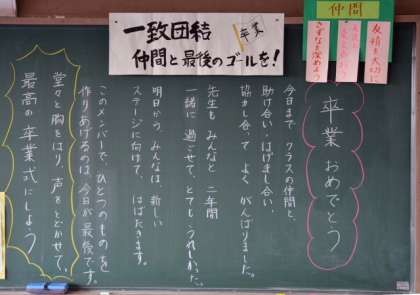 一致団結
卒業
仲間と最後のゴールを!
仲間
友情を大切に
きずなを深めよう
卒業おめでとう
今日まで、クラスの仲間と、
助け合い、はげまし合い、
協力し合って よく がんばりました。
先生も みんなと 二年間
一緒に 過ごせて、とても うれしかった。
明日から、みんなは、新しい
ステージに向けて、はばたきます。
このメンバーで、ひとつのものを
作りあげるのは、今日が最後です。
堂々と胸をはり 声をとどかせて、
最高の卒業式にしよう